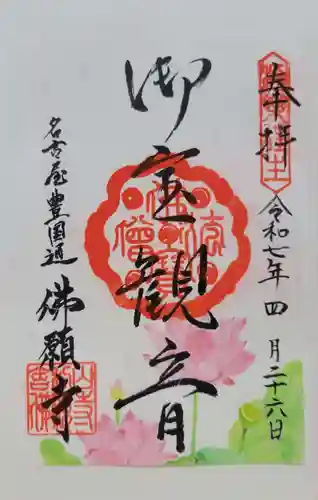 奉拝
令和七年四月二十六日
御宝觀音
名古屋豊国通
佛願寺